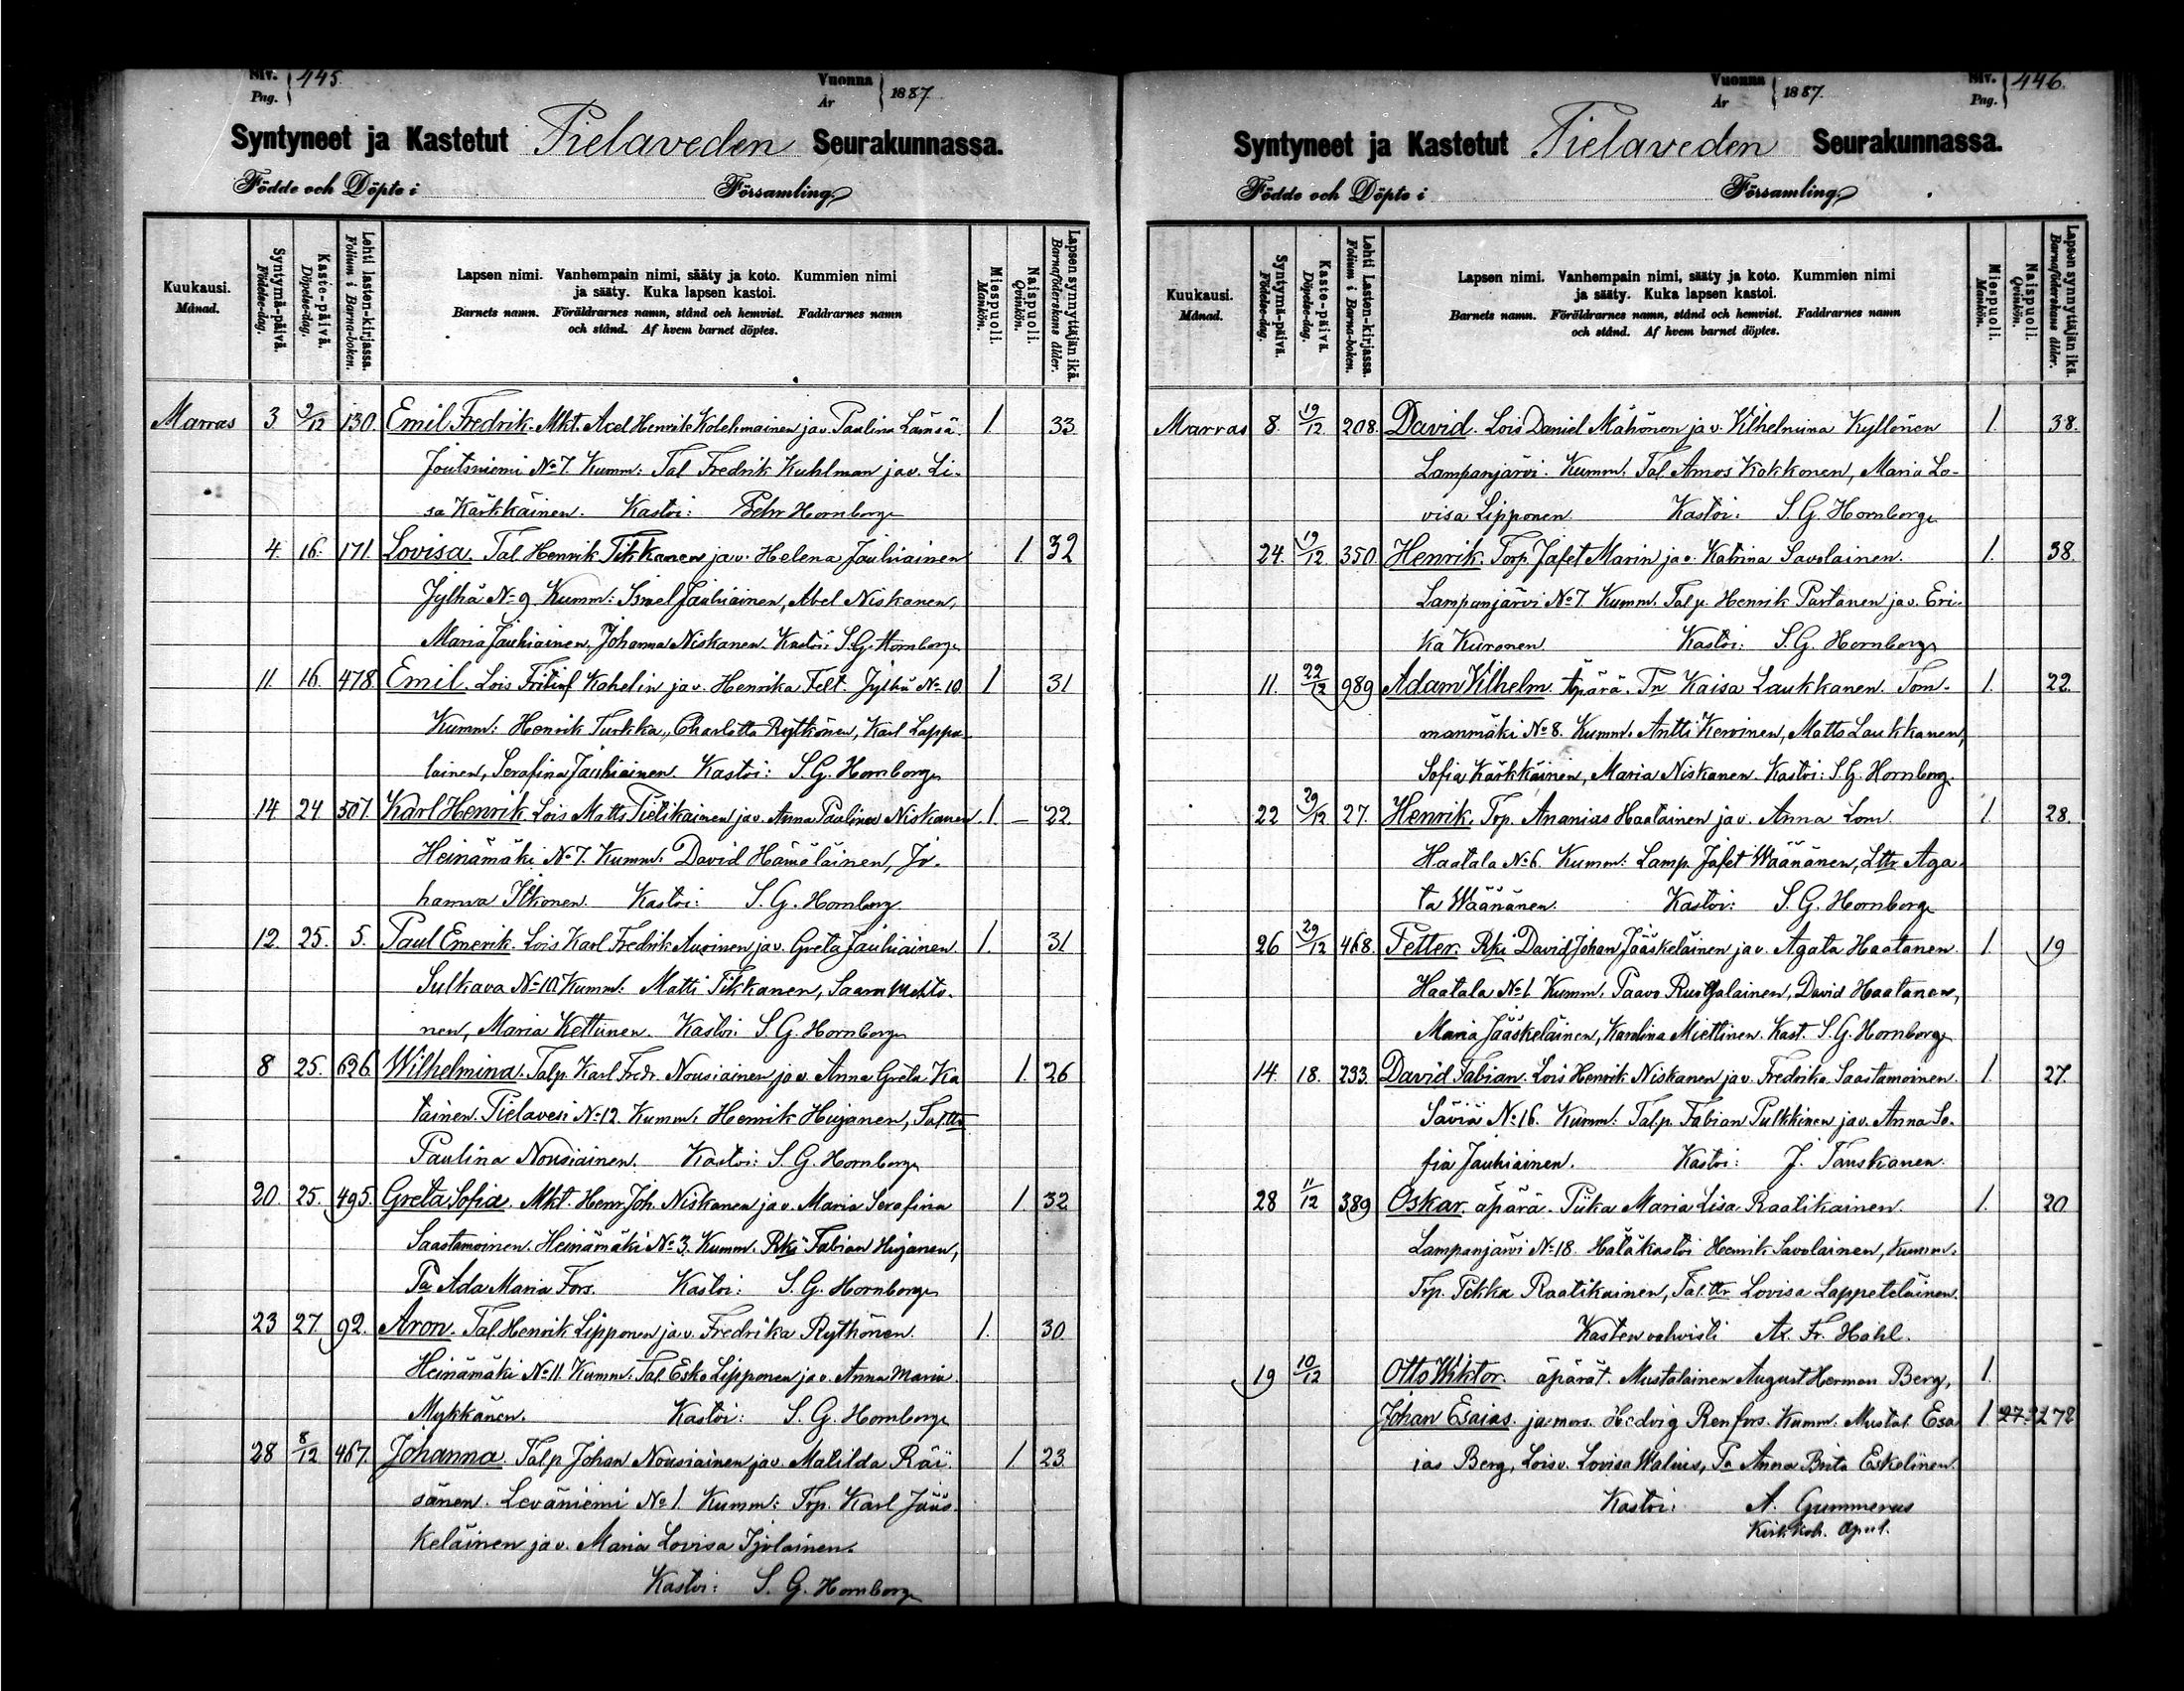 Siv. 445.
Pag.
Vuonna 1887.
År
Syntyneet ja Kastetut Pielaveden Seurakunnassa.
Födde och Döpte i Församling.
Kuukausi.
Månad.
Syntymä-päivä.
Födelse-dag.
Kaste-päivä.
Döpelse-dag.
Lehti lasten-kirjassa.
Folium i Barna-boken.
Lapsen nimi. Vanhempain nimi, sääty ja koto. Kummien nimi
ja sääty. Kuka lapsen kastoi.
Barnets namn. Föräldrarnes namn, stånd och hemvist. Faddrarnes namn
och stånd. Af hvem barnet döptes.
Miespuoli.
Mankön.
Naispuoli.
Qvinkön.
Lapsen synnyttäjän ikä.
Barnaföderskans ålder.
Marras 3 9/12 130. Emil Fredrik. Mkt. Axel Henrik Kolehmainen ja v. Paulina Lämsä. 1. 33.
Joutsniemi No 7. Kumm: Tal Fredrik Kuhlman ja v. Li-
sa Kärkkäinen. Kastoi: Petr Hornborg
4. 16. 171. Lovisa. Tal. Henrik Tikkanen ja v. Helena Jauhiainen 1. 32
Jylhä No 9 Kumm: Israel Jauhiainen, Abel Niskanen,
Maria Jauhiainen, Johanna Niskanen. Kastoi: S. G. Hornborg
11. 16. 478. Emil. Lois Fritiof Kahelin ja v. Henrika Felt. Jylhä No 10 1 31
Kumm: Henrik Turkka, Charlotta Rytkönen, Karl Lappa-
lainen, Serafina Jauhiainen. Kastoi: S. G. Hornborg
14. 24 507. Karl Henrik. Lois Matts Tiilikainen ja v. Anna Paulina Niskanen. 1. – 22.
Heinämäki No 7. Kumm: David Hämäläinen, Jo-
hanna Itkonen. Kastoi: S. G. Hornborg.
12. 25. 5. Paul Emerik. Lois Karl Fredrik Aurinen ja v. Greta Jauhiainen. 1. 31
Sulkava No 10. Kumm: Matti Tikkanen, Saara Mehto-
nen, Maria Kettunen. Kastoi: S. G. Hornborg
8 25. 626. Wilhelmina. Talp. Karl Fredr. Nousiainen ja v. Anna Greta Ka 1. 26
tainen. Pielavesi No 12. Kumm: Henrik Hujanen, Tal.ttr
Paulina Nousiainen. Kastoi: S. G. Hornborg
20. 25. 495. Greta Sofia. Mkt. Henr. Joh. Niskanen ja v. Maria Serafina 1. 32
Saastamoinen. Heinämäki No 3. Kumm. Rki Fabian Hujanen,
Pa Ada Maria Fors. Kastoi: S. G. Hornborg
23 27. 92. Aron. Tal Henrik Lipponen ja v. Fredrika Rytkönen. 1. 30
Heinämäki No 11. Kumm: Tal Esko Lipponen ja v. Anna Maria
Mykkänen. Kastoi: S. G. Hornborg
28 8/12 467. Johanna. Talp. Johan Nousiainen ja v. Matilda Räi- 1. 23.
sänen. Leväniemi No 1. Kumm: Trp. Karl Jääs-
keläinen ja v. Maria Lovisa Ijolainen.
Kastoi: S. G. Hornborg
Siv. 446.
Pag.
Vuonna 1887.
År
Syntyneet ja Kastetut Pielaveden Seurakunnassa.
Födde och Döpte i Församling.
Kuukausi.
Månad.
Syntymä-päivä.
Födelse-dag.
Kaste-päivä.
Döpelse-dag.
Lehti Lasten-kirjassa.
Folium i Barna-boken.
Lapsen nimi. Vanhempain nimi, sääty ja koto. Kummien nimi
ja sääty. Kuka lapsen kastoi.
Barnets namn. Föräldrarnes namn, stånd och hemvist. Faddrarnes namn
och stånd. Af hvem barnet döptes.
Miespuoli.
Mankön.
Naispuoli.
Qvinkön.
Lapsen synnyttäjän ikä.
Barnaföderskans ålder.
Marras 8. 19/12 208. David. Lois Daniel Mähönen ja v. Vilhelmina Kyllönen 1. 38.
Lampanjärvi. Kumm: Tal. Amos Kokkonen, Maria Lo-
visa Lipponen. Kastoi: S. G. Hornborg
24. 19/12 350. Henrik. Torp. Jafet Marin ja v. Katrina Savolainen. 1. 38.
Lampanjärvi No 7. Kumm. Talp. Henrik Partanen ja v. Eri-
ka Kuronen. Kastoi: S. G. Hornborg
11. 22/12 989 Adam Vilhelm. Äpärä. Tn Kaisa Laukkanen. Tom- 1. 22.
manmäki No 8. Kumm. Antti Kervinen, Matts Laukkanen,
Sofia Kärkkäinen, Maria Niskanen. Kastoi: S. G. Hornborg.
22 29/12 27. Henrik. Trp. Ananias Haatainen ja v. Anna Lom. 1. 28.
Haatala No 6. Kumm: Lamp. Jafet Wäänänen, Lttr Aga-
ta Wäänänen. Kastoi: S. G. Hornborg
26 29/12 468. Petter. Rki David Johan Jääskeläinen ja v. Agata Haatanen. 1. 19
Haatala No 1. Kumm. Paavo Ruotsalainen, David Haatanen,
Maria Jääskeläinen, Karolina Miettinen. Kast. S. G. Hornborg
14. 18. 233. David Fabian. Lois Henrik Niskanen ja v. Fredrika Saastamoinen. 1. 27.
Säviä No 16. Kumm: Talp. Fabian Pulkkinen ja v. Anna So-
fia Jauhiainen. Kastoi: J. Tanskanen.
28 11/12 389 Oskar. äpärä. Piika Maria Lisa Raatikainen. 1. 20
Lampanjärvi No 18. Hätäkastoi Henrik Savolainen, Kumm.
Trp. Pekka Raatikainen, Tal.ttr Lovisa Lappeteläinen.
Kasten vahvisti Ax. Fr. Hahl.
19 10/12 Otto Wiktor. äpärät. Mustalainen August Herman Berg, 1.
Johan Esaias. ja mors. Hedvig Renfors. Kumm. Mustal. Esa 1. 272
ias Berg, Lois v. Lovisa Walius, Pa Anna Brita Eskelinen.
Kastoi: A. Gummerus
Kirkkoh. Apul.